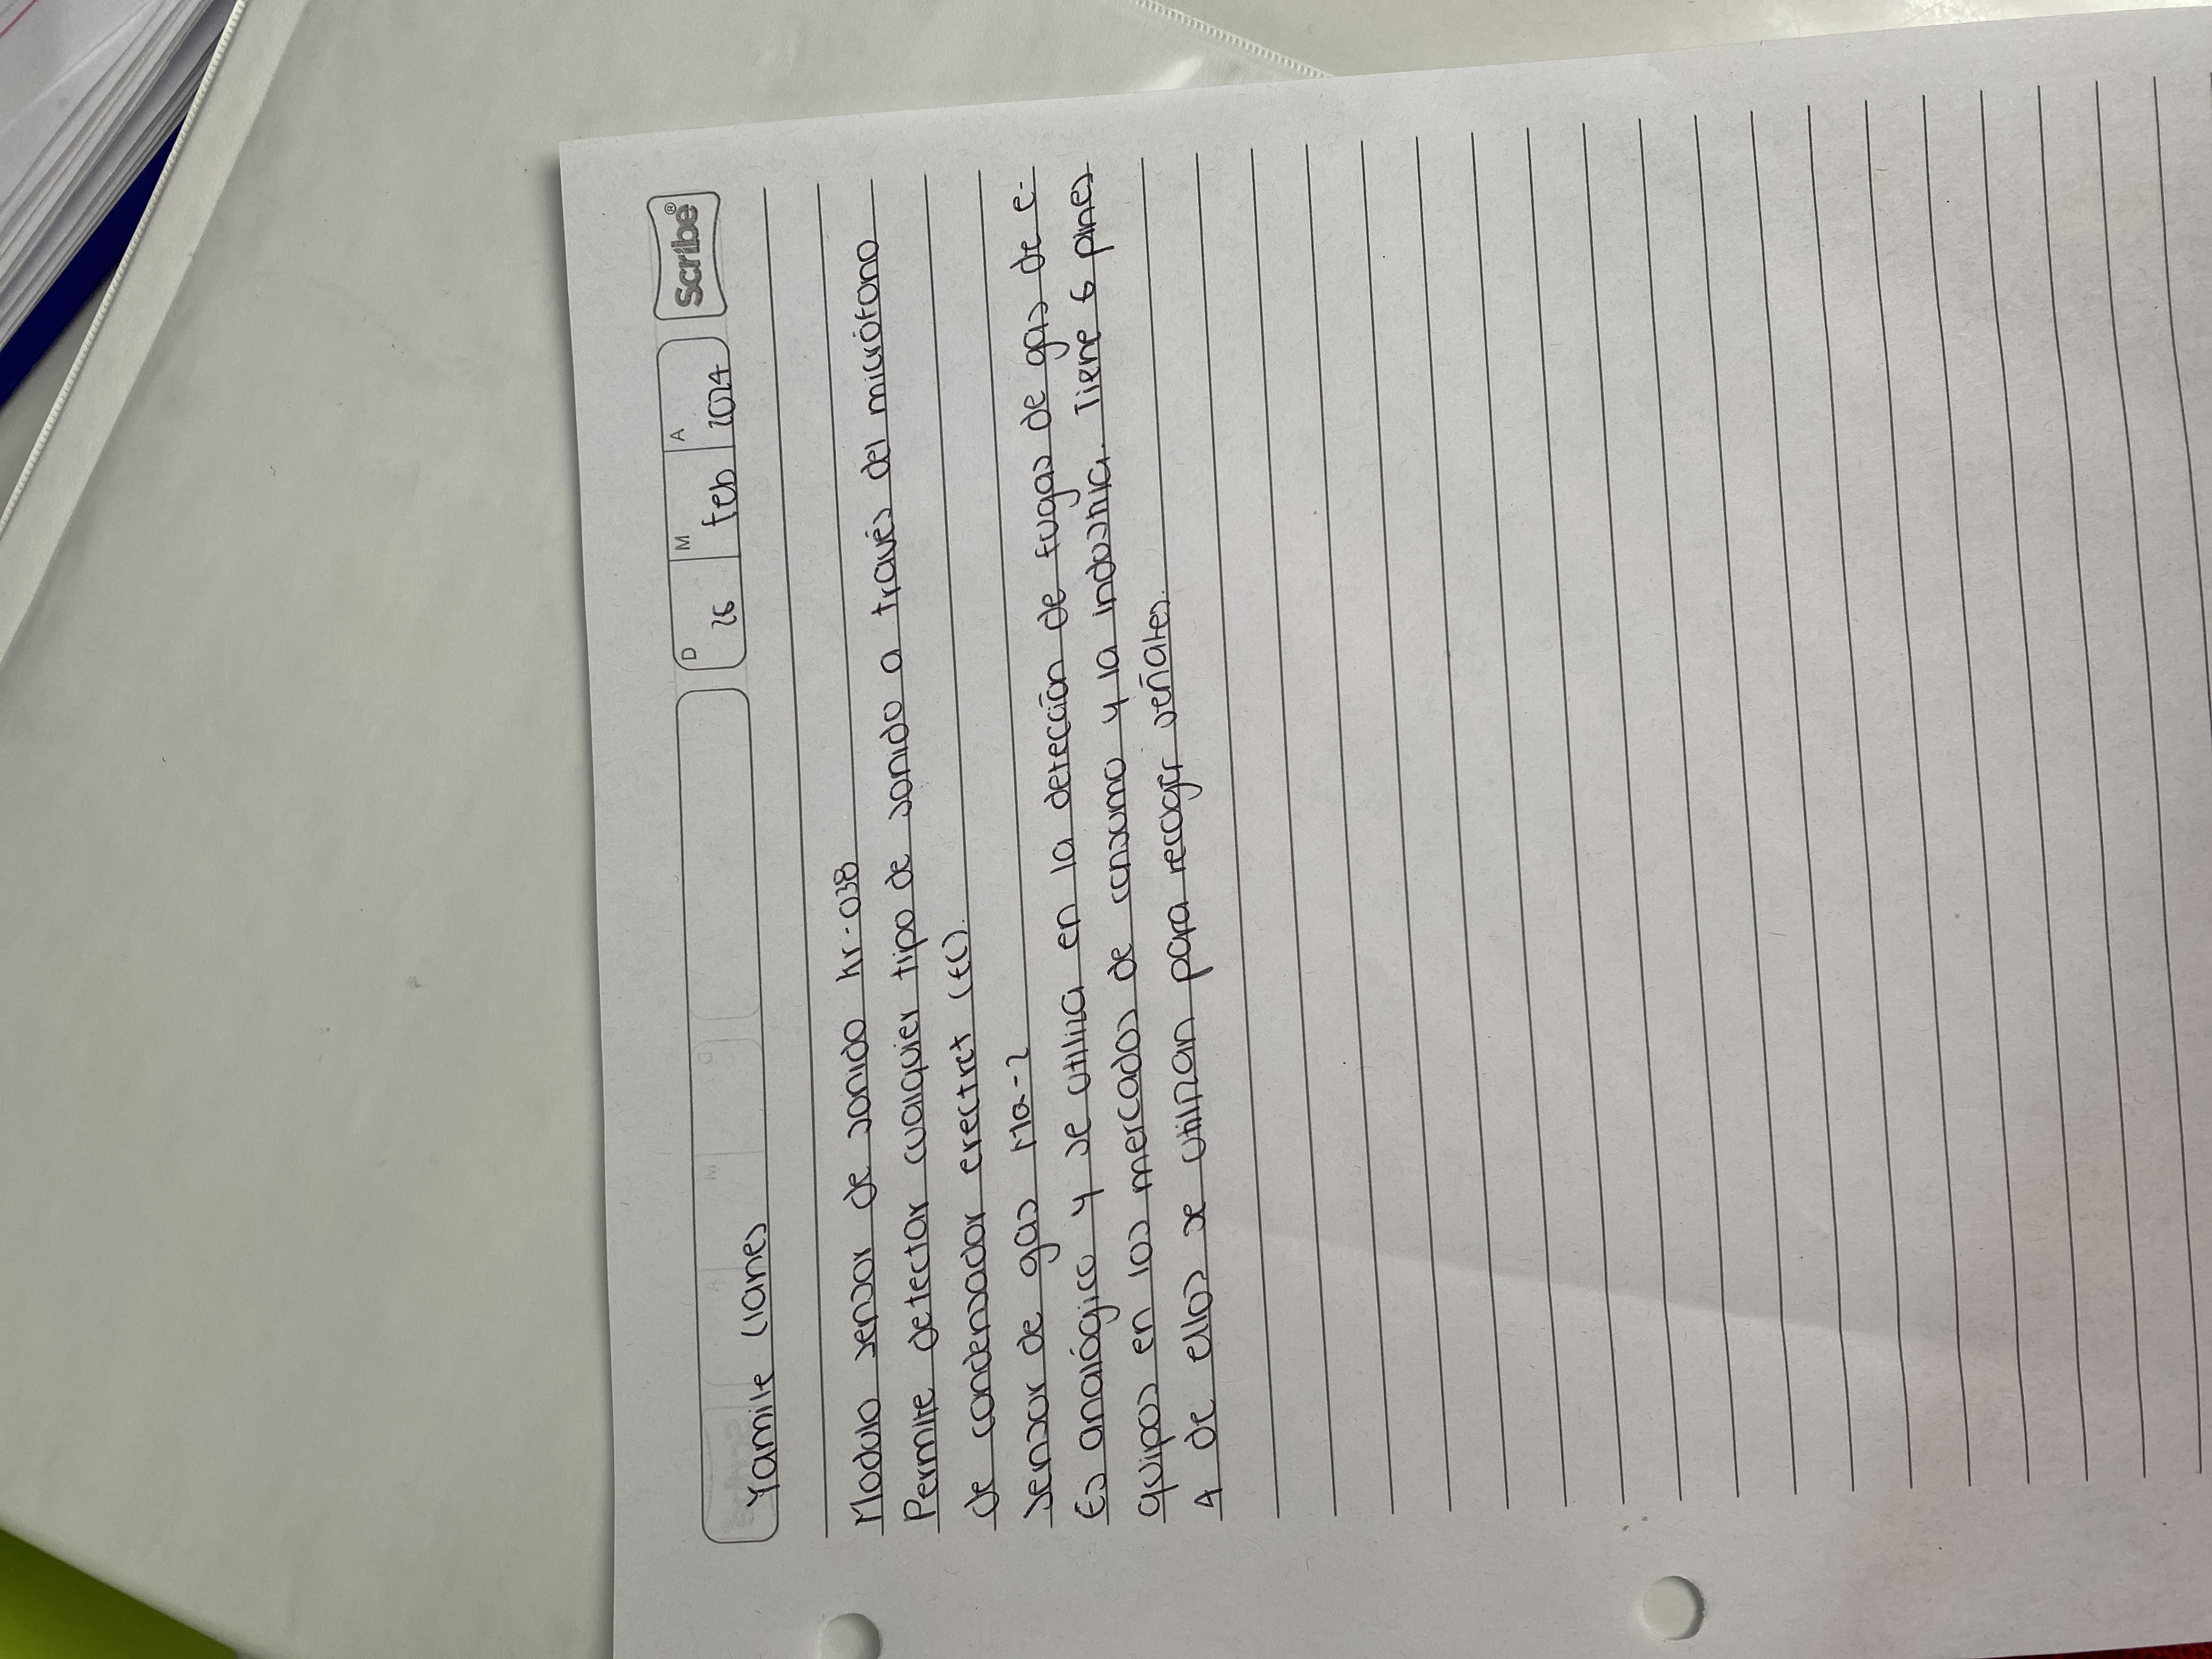 Scribe®
D M A
26 feb 2024
Yamile Llanes
Modulo sensor de sonido kr-038
Permite detectar cualquier tipo de sonido a través del micrófono
de condensador erectret (EC).
Sensor de gas MQ-2
Es analógico y se utiliza en la detección de fugas de gas de e-
quipos en los mercados de consumo y la industria. Tiene 6 pines
4 de ellos se utilizan para recoger señales.